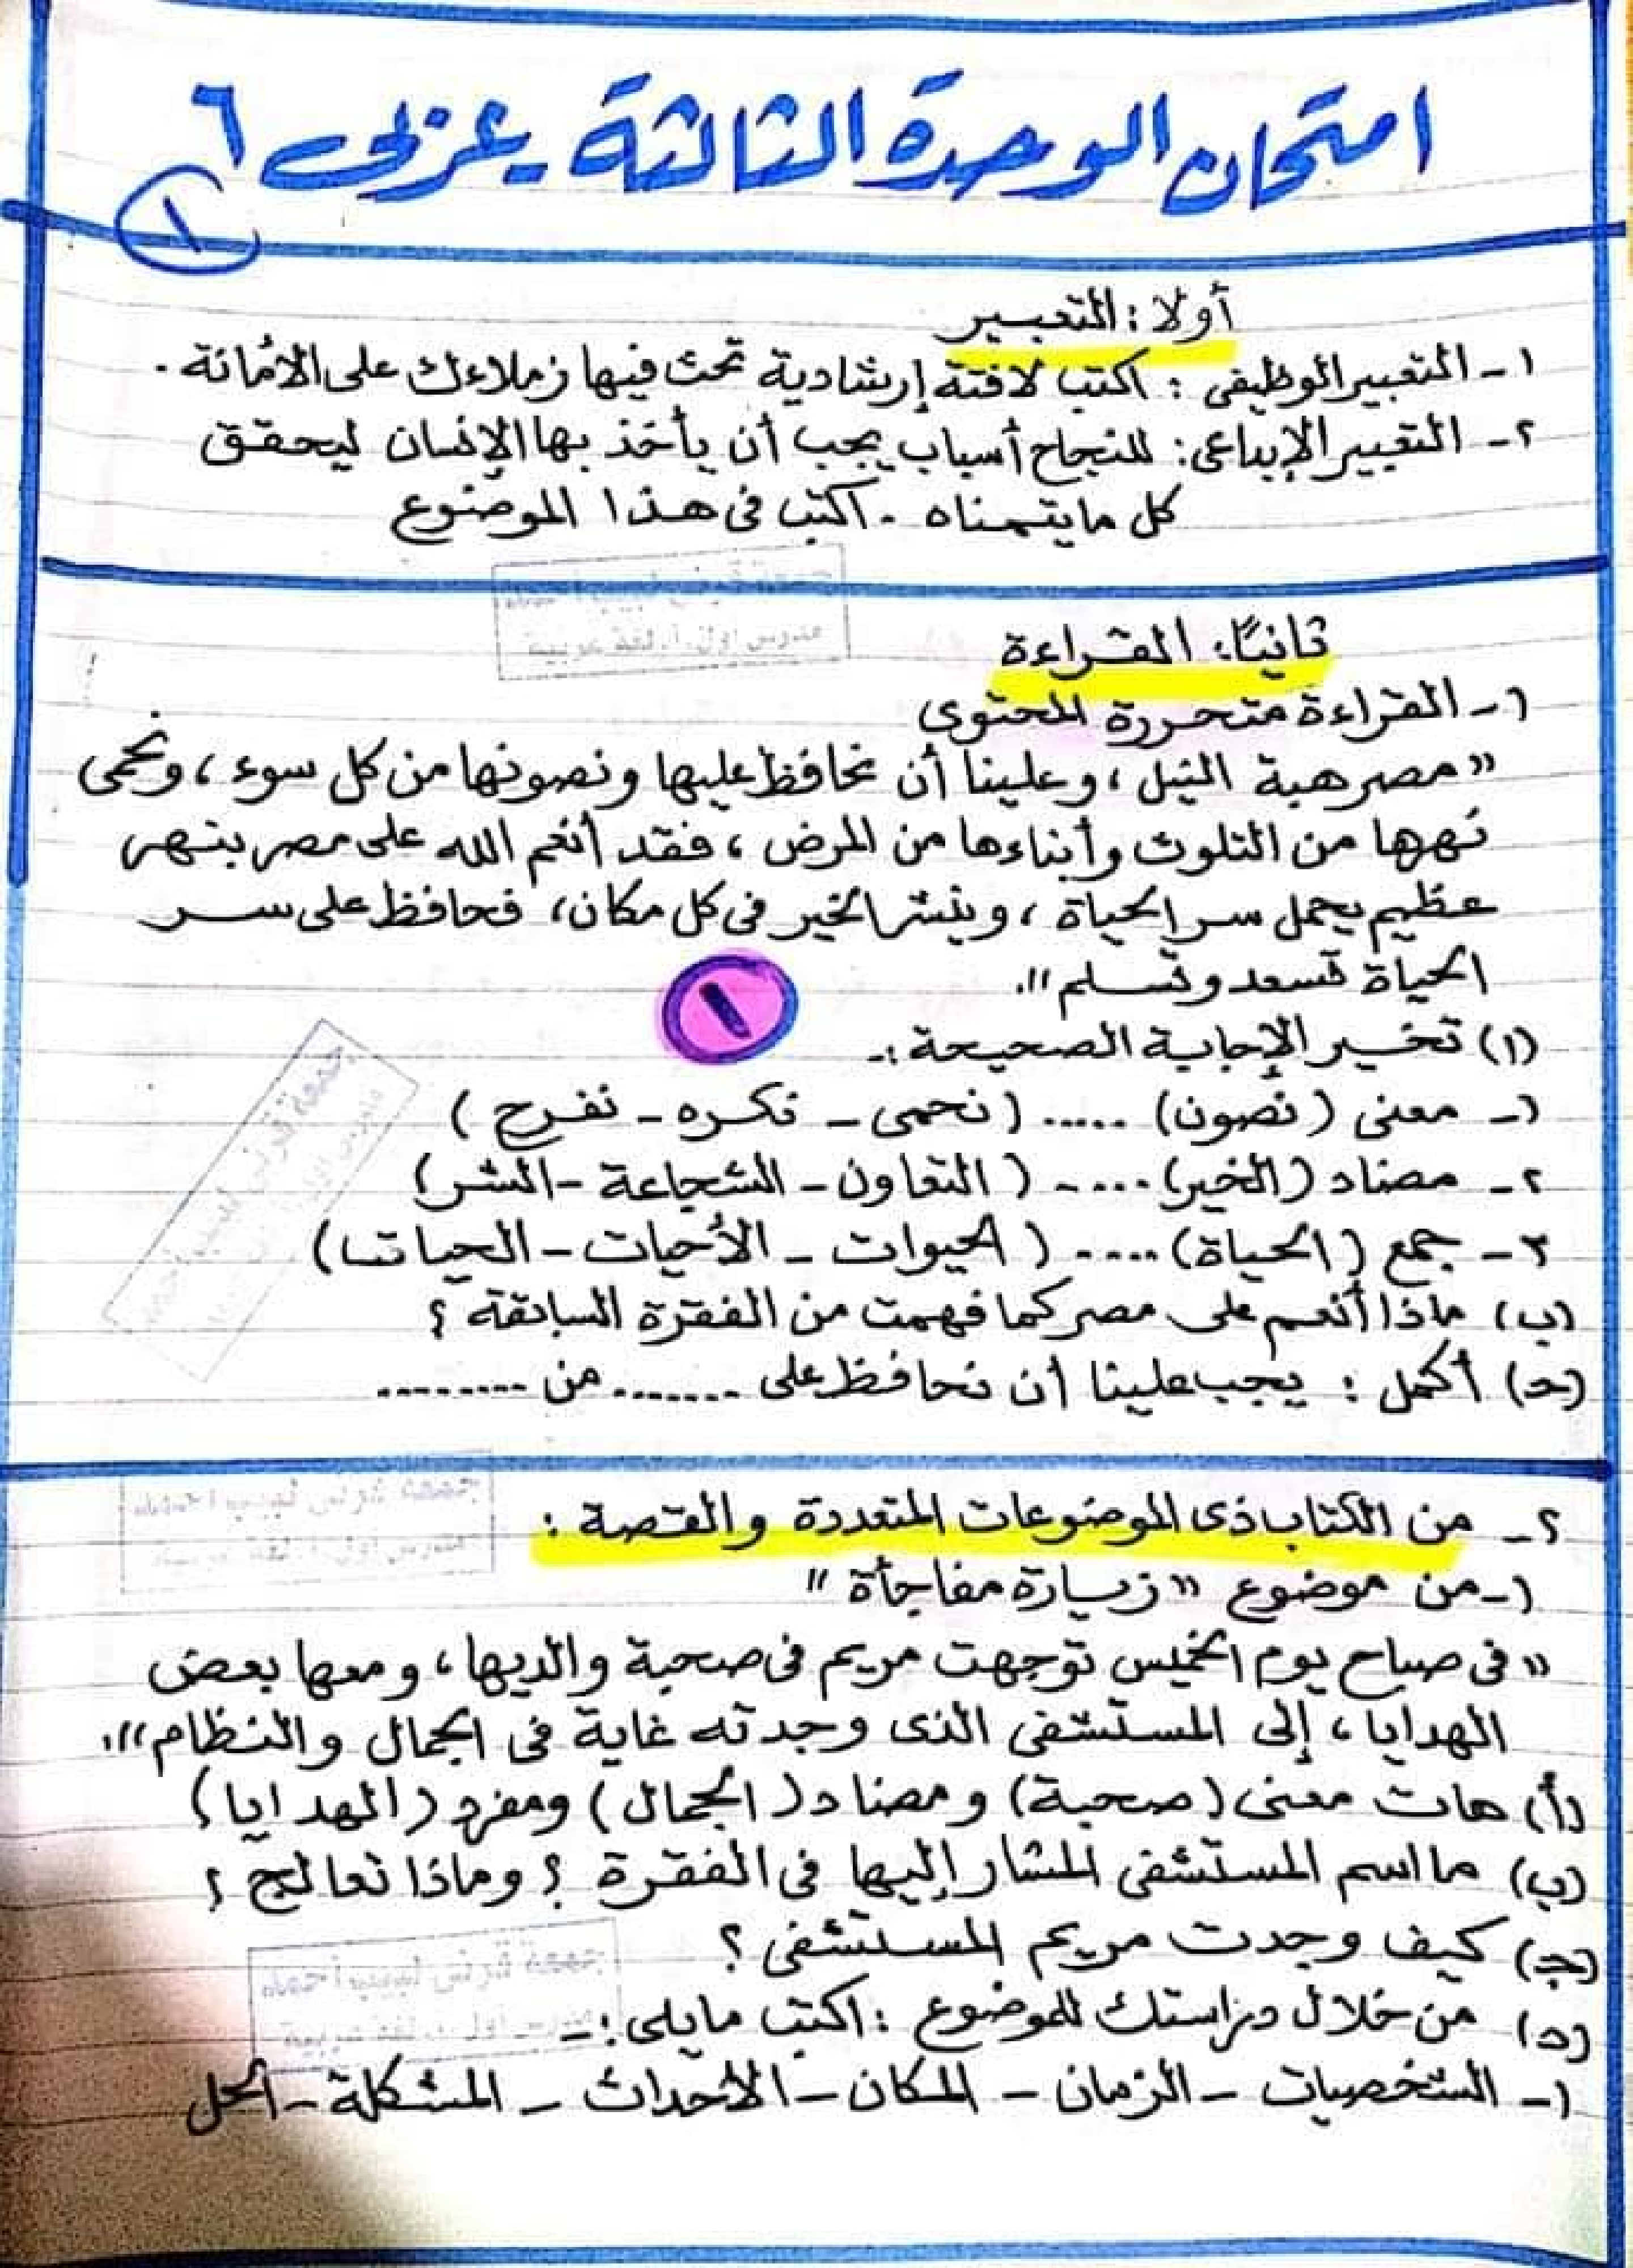 امتحان الوحدة الثالثة - عربى ٦
١
أولا : التعبير
١- التعبير الوظيفى : اكتب لافتة إرشادية تحث فيها زملاءك على الأمانة .
٢- التعبير الإبداعى : للنجاح أسباب يجب أن يأخذ بها الإنسان ليحقق
كل ما يتمناه - اكتب فى هذا الموضوع
جمعة قرنى لبيب احمد
مدرس اول أ. لغة عربية
ثانيًا: القراءة
١- القراءة متحررة المحتوى
" مصر هبة النيل ، وعلينا أن نحافظ عليها ونصونها من كل سوء ، ونحمى
نهرها من التلوث وأبناءها من المرض ، فقد أنعم الله على مصر بنهر
عظيم يحمل سر الحياة ، وينشر الخير فى كل مكان ، فحافظ على سر
الحياة تسعد وتسلم ".
١
(١) تخير الإجابة الصحيحة :-
١- معنى ( نصون) ..... ( نحمى - نكره - نفرح )
٢- مضاد (الخير) ..... ( التعاون - الشجاعة - الشر)
٣- جمع (الحياة) ..... ( الحيوات - الأحيات - الحيات)
(ب) ماذا أنعم على مصر كما فهمت من الفقرة السابقة ؟
(حـ) أكمل : يجب علينا أن نحافظ على ....... من .........
جمعة قرنى لبيب احمد
جمعة قرنى لبيب احمد
مدرس اول أ. لغة عربية
٢- من الكتاب ذى الموضوعات المتعددة والقصة :
١- من موضوع " زيارة مفاجأة "
" فى صباح يوم الخميس توجهت مريم فى صحبة والديها ، ومعها بعض
الهدايا ، إلى المستشفى الذى وجدته غاية فى الجمال والنظام ".
(أ) هات معنى (صحبة) ومضاد (الجمال) ومفرد (الهدايا)
(ب) ما اسم المستشفى المشار إليها فى الفقرة ؟ وماذا تعالج ؟
(جـ) كيف وجدت مريم المستشفى ؟
(د) من خلال دراستك للموضوع : اكتب ما يلى :-
١- الشخصيات - الزمان - المكان - الأحداث - المشكلة - الحل
جمعة قرنى لبيب احمد
مدرس اول أ. لغة عربية